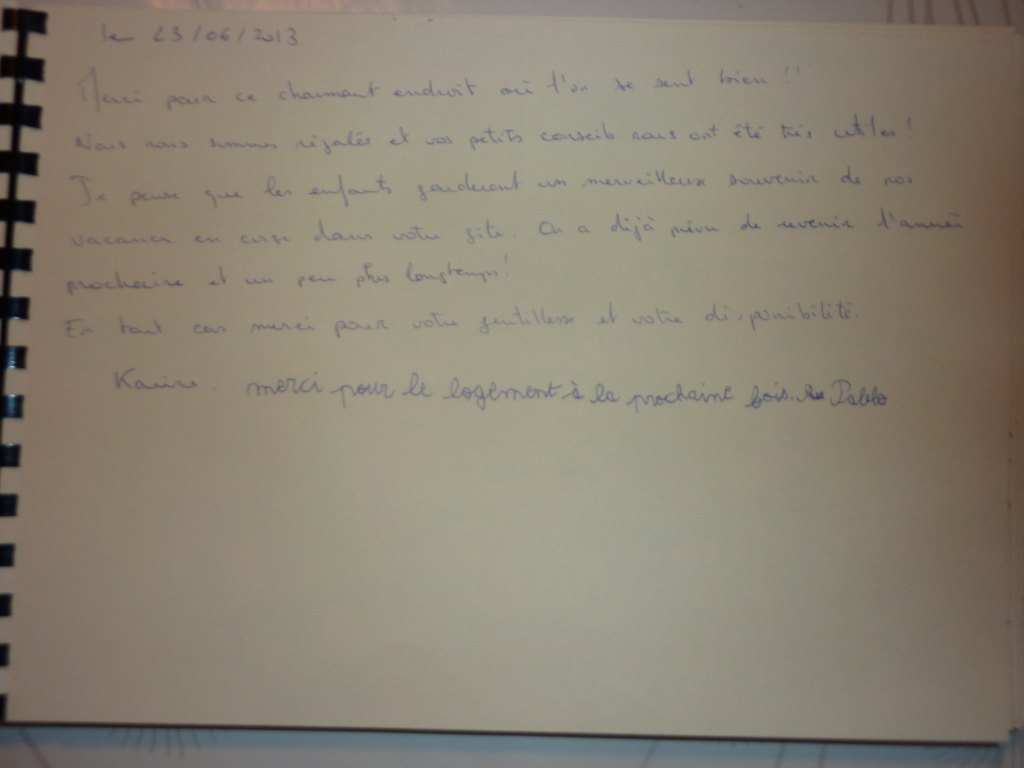 le 23/06/2013
Merci pour ce charmant endroit où l'on se sent bien !!
Nous nous sommes régalés et vos petits conseils nous ont été très utiles !
Je pense que les enfants garderont un merveilleux souvenir de nos
vacances en corse dans votre gite. On a déjà prévu de revenir l'année
prochaine et un peu plus longtemps !
En tout cas merci pour votre gentillesse et votre disponibilité.
Karine. merci pour le logement à la prochaine fois. Pablo